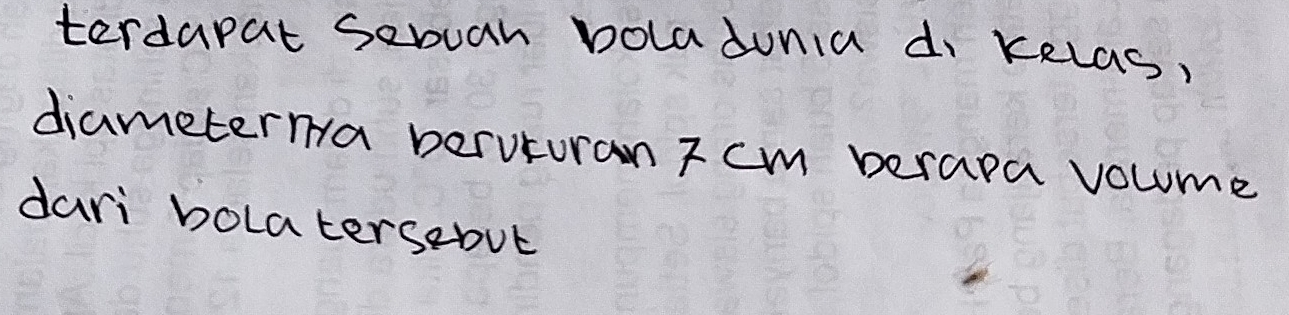 terdapat Sebuah bola dunia di kelas,
diameternya berukuran 7 cm berapa volume
dari bola tersebut